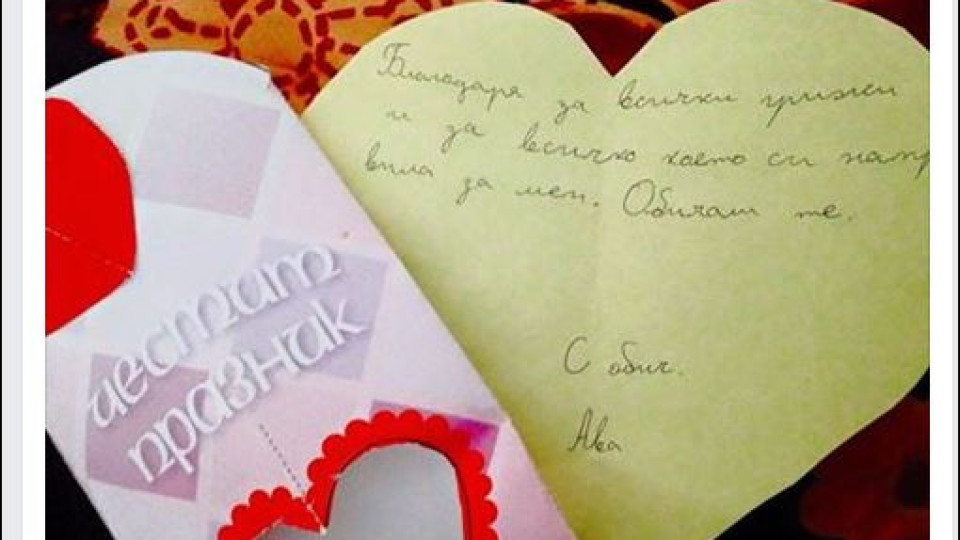 честит
празник
Благодаря за всички грижи
и за всичко което си напр
вила за мен. Обичам те.
С обич.
Ава